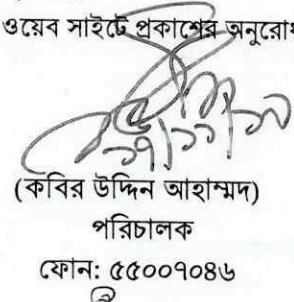 ওয়েব সাইটে প্রকাশের
(কবির উদ্দিন আহাম্মদ)
পরিচালক
ফোন: ৫৫০০৭০৪৬